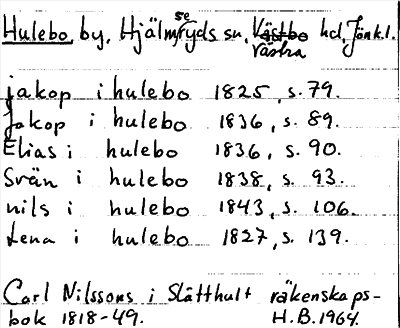 Hulebo by, Hjälmseryds sn, Västra hd, Jönk.l.
jakop i hulebo 1825, s. 79.
Jakop i hulebo 1836, s. 89.
Elias i hulebo 1836, s. 90.
Svän i hulebo 1838, s. 93.
nils i hulebo 1843, s. 106.
Lena i hulebo 1827, s. 139.
Carl Nilssons i Slätthult räkenskaps-
bok 1818-49. H.B. 1964.